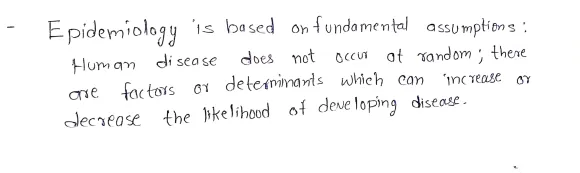 - Epidemiology is based on fundamental assumptions :
Human disease does not occur at random ; there
are factors or determinants which can increase or
decrease the likelihood of developing disease.